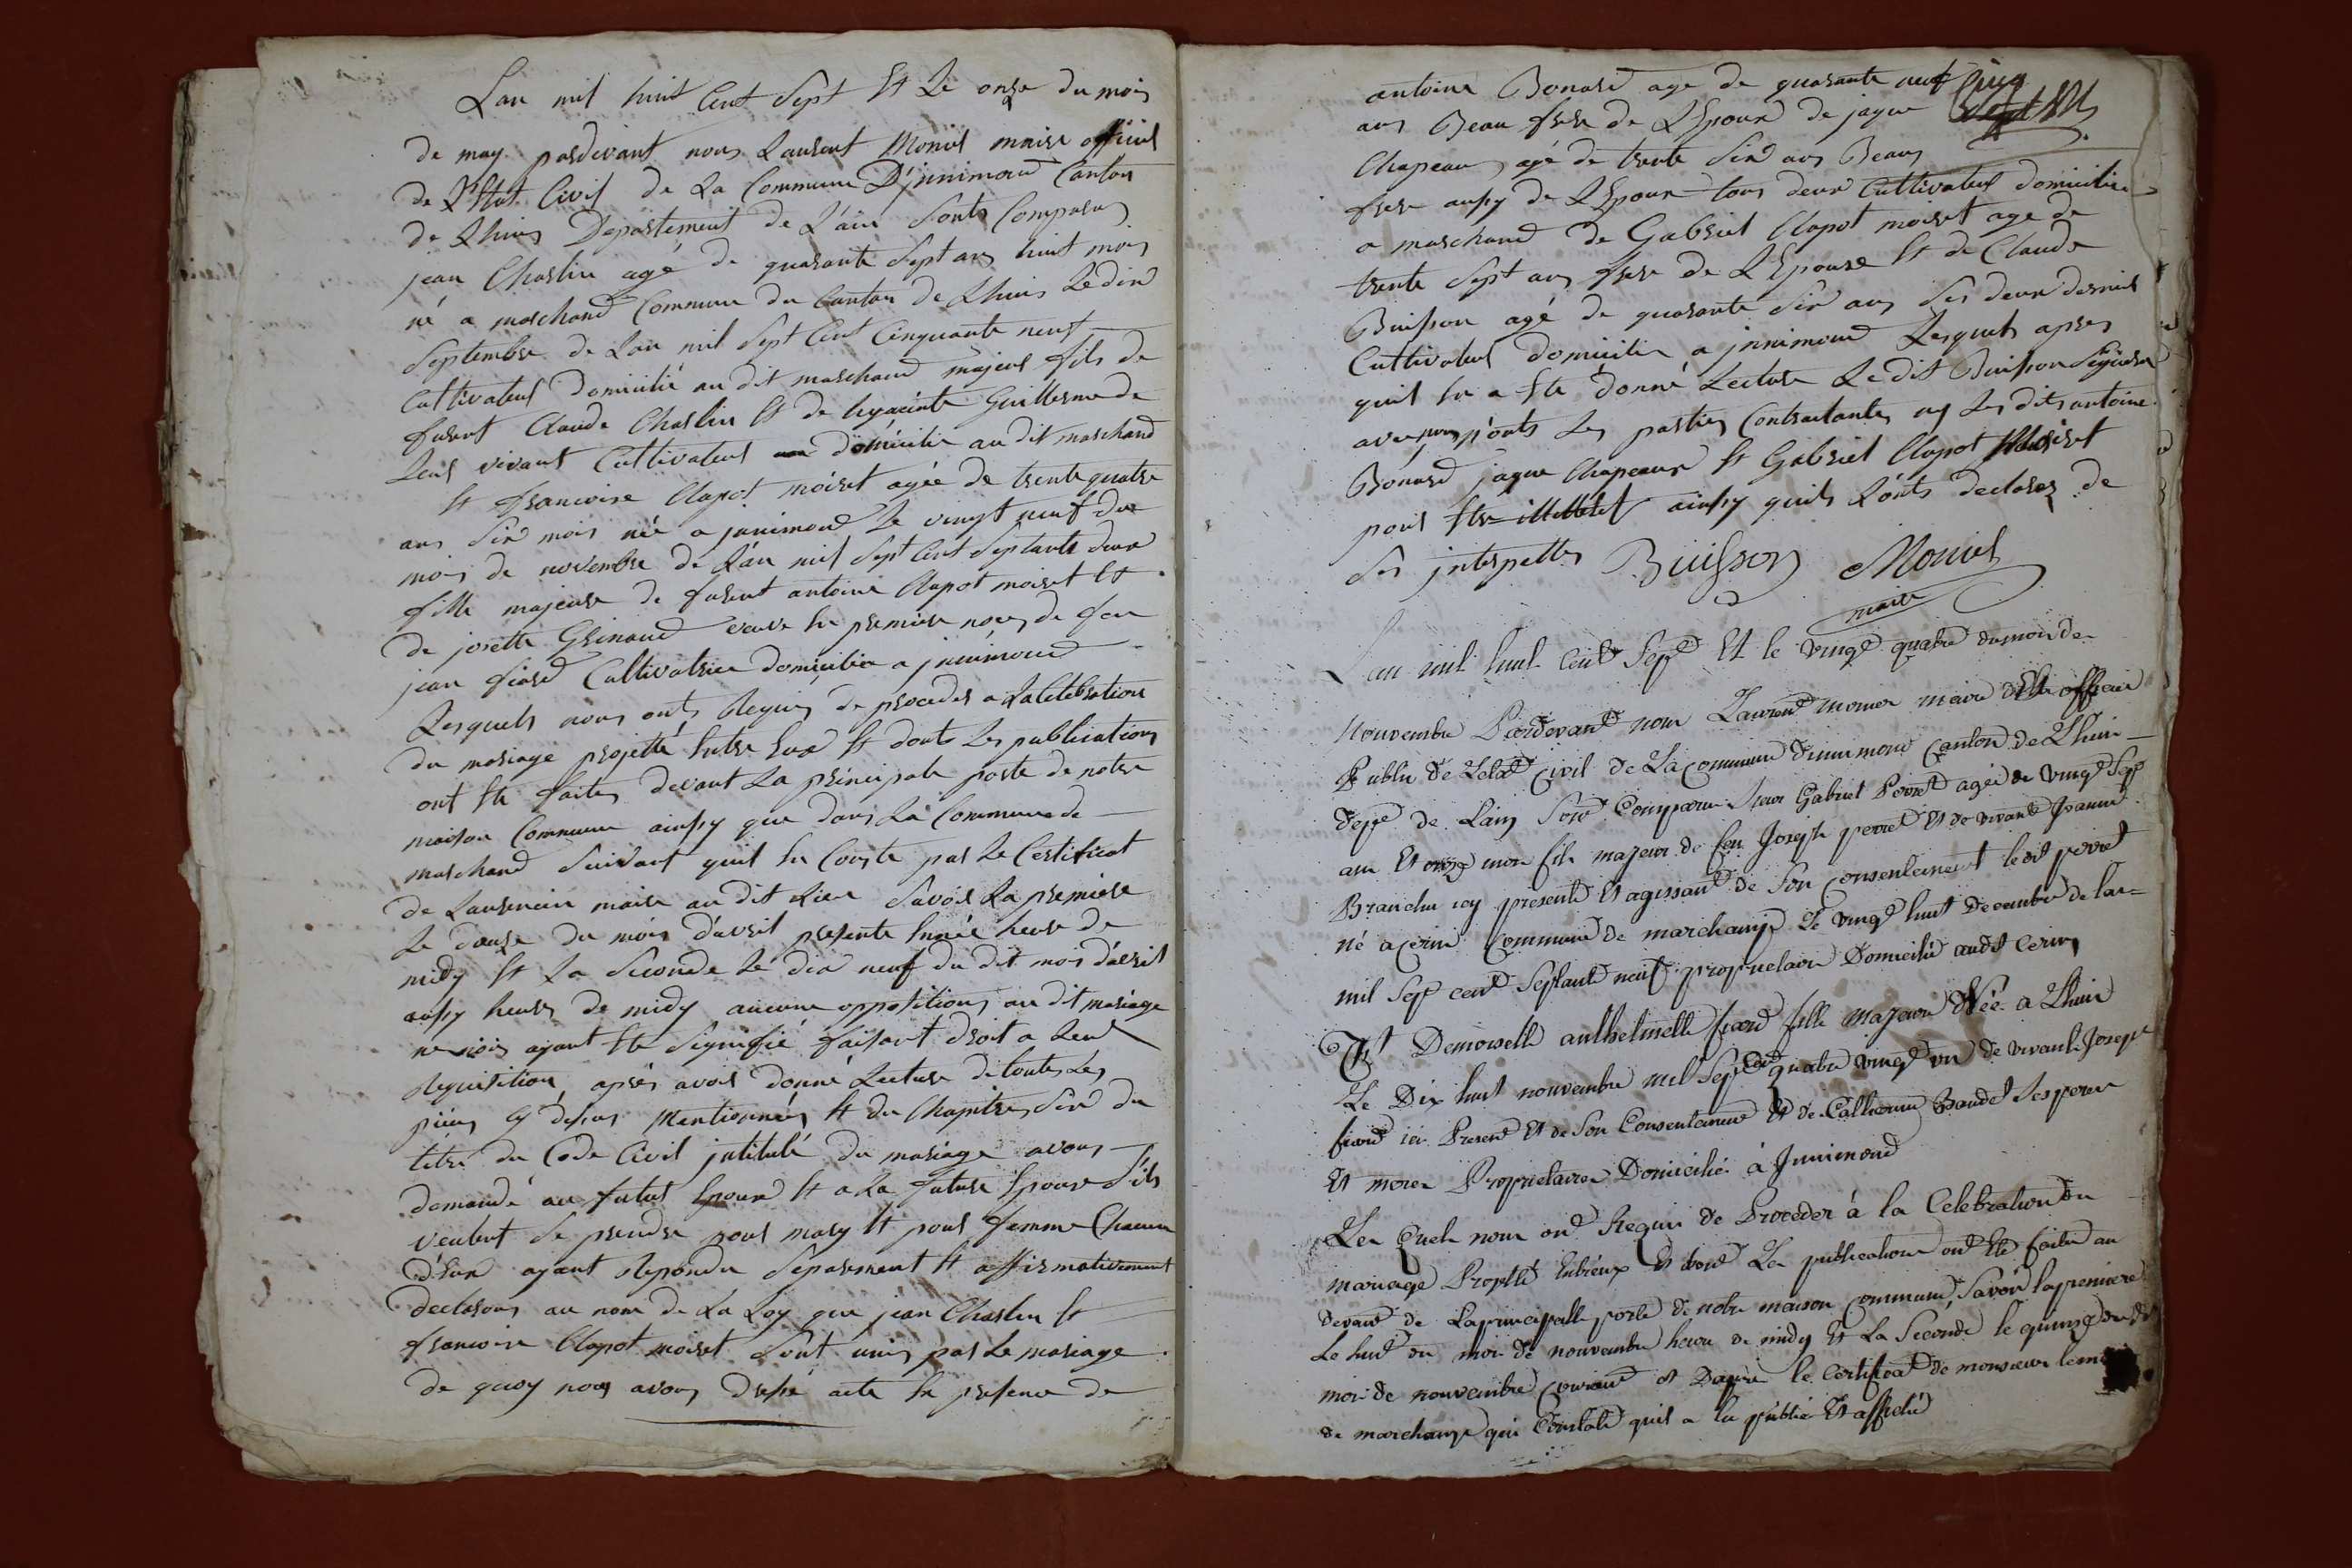 Lan mil huit Cent Sept Et Le onze du mois
de may pardevant nous Laurent Monier maire officier
de L'Etat Civil de La Commune D'jnnimond Canton
de Lhuis Departement de L'ain Sonts Comparus
jean Charlin agé de quarante Sept ans huit mois
né a marchand Commune du Canton de Lhuis Le dix
Septembre de Lan mil Sept Cent Cinquante neuf
Cultivateur Domicilié au dit marchand majeur fils de
furent Claude Charlin Et de hyacinte Guillerme de
Leur vivant Cultivateur domicilié au dit marchand
Et francoise Clapot moiret agée de trente quatre
ans Six mois née a jnnimond Le vingt neuf du
mois de novembre de L'an mil Sept Cent Septante deux
fille majeure de furent antoine Clapot moiret Et
de josette Grinand veuve En premiere noces de feu
jean fiard Cultivatrice domiciliée a jnnimond
Lesquels nous onts Requis de proceder a La Celebration
du mariage projetté Entre Eux Et donts Les publications
ont Eté faites devant La principale porte de notre
maison Commune ainsy que dans La Commune de
marchand Suivant quil En Conste par Le Certificat
de maire au dit Lieu Savoir La premiere
Le douze du mois d'avril presente Année heure de
midy Et La Seconde Le dix neuf du dit mois d'avril
aussy heure de midy aucune oppositions au dit mariage
ne nous ayant Eté Signifié faisant droit a Leur
Requisition, après avoir donné Lecture de toutes Les
pièces Cy dessus Mentionnées Et du Chapitre Six du
titre du Code Civil jntitulé du mariage avons
demandé au futur Epoux Et a La future Epouse S'ils
veulent Se prendre pour mary Et pour femme Chacun
d'Eux ayant Repondu Séparement Et affirmativement
declarons au nom de La Loy que jean Charlin Et
francoise Clapot moiret Sont unis par Le mariage.
de quoy nous avons dressé acte En presence de
antoine Bonard age de quarante neuf
ans Beau frere de L'Epoux de jaque
Chapeaux agé de trente Six ans Beau
frere aussy de L'Epoux tous deux Cultivateur domicilié
a marchand de Gabriel Clapot moiret age de
trente Sept ans frere de L'Epouse Et de Claude
Buisson agé de quarante Six ans Ses deux dernier
Cultivateur domicilié a jnnimond Lesquels apres
quil En a Eté donné Lecture Le dit Buisson Signera
avec nous n'onts Les parties Contractantes ny Les dits antoine
Bonard jaque Chapeaux Et Gabriel Clapot Moiret
pour Etre illitteré ainsy quils L'onts declarez de
Ses jnterpettés Buisson Monier
maire
Lan mil huit Cent Sept Et le vingt quatre du mois de
Nouvembre Pardevant nous Laurent monier maire Et officier
Public de Letat Civil de La Commune dinnimond Canton de Lhuis
Dept de Lain Sont Comparu Sieur Gabriel Perret agée de vingt Sept
ans Et onze mois fils majeur de feu Joseph perret Et de vivante Jeanne
Branche icy presente Et agissant de Son Consentement ledit perret
né a Cerin Commune de marchamp Le vingt huit Decembre de lan
mil Sept cent Septante neuf proprietaire Domicilié audit Cerin
Et Demoiselle anthelmette fiard fille majeure Née a Lhuis
Le Dix huit nouvembre mil Sept cent quatre vingt un de vivant Joseph
fiard ici Present Et de Son Consentement Et de Catherine Baudet Ses peres
Et meres Proprietaires Domicilié à Innimond
Les Quels nous ont Requis de Proceder à la Celebration du
mariage Projetté Entreux Et dont Les publications ont Eté faites au
devant de La principalle porte de notre maison Commune, Savoir la premiere
Le huit du mois de nouvembre heure de midy Et La Seconde le quinze du dit
mois de nouvembre Courant Et Daprès le Certificat de monsieur le
de marchamp qui Constate quil a lu publié Et affiché